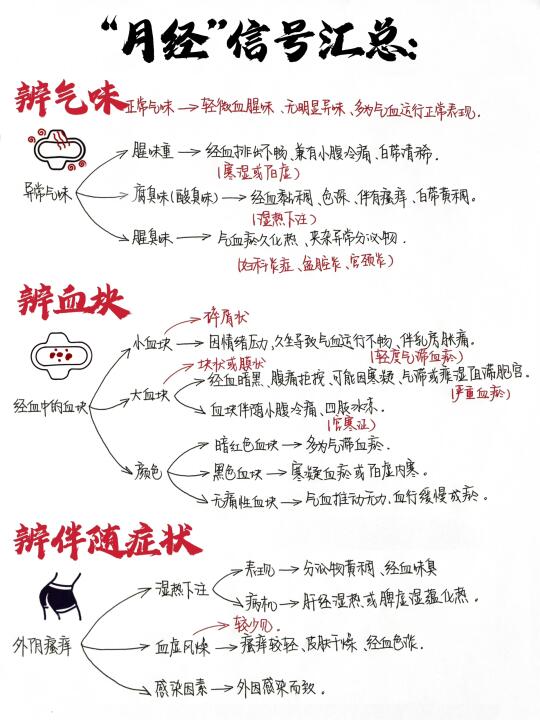 “月经”信号汇总:
辨气味
正常气味→轻微血腥味、无明显异味、多为气血运行正常表现.
异常气味
腥味重→经血排出不畅、兼有小腹冷痛、白带清稀.
(寒湿或阳虚)
腐臭味(酸臭味)→经血黏稠、色深、伴有瘙痒、白带黄稠。
(湿热下注)
腥臭味→气血瘀久化热、夹杂异常分泌物.
(妇科炎症、盆腔炎、宫颈炎)
辨血块
碎屑状
小血块→因情绪压力,久坐导致气血运行不畅、伴乳房胀痛.
(轻度气滞血瘀)
块状或膜状
经血中的血块
大血块
经血暗黑、腹痛拒按、可能因寒凝、气滞或痰湿阻滞胞宫.
(严重血瘀)
血块伴随小腹冷痛、四肢冰冻.
(宫寒证)
颜色
暗红色血块→多为气滞血瘀.
黑色血块→寒凝血瘀或阳虚内寒。
无痛性血块→气血推动无力,血行缓慢成瘀.
辨伴随症状
外阴瘙痒
湿热下注
表现→分泌物黄稠、经血味臭
病机→肝经湿热或脾虚湿蕴化热.
较少见.
血虚风燥→瘙痒较轻、皮肤干燥、经血色淡.
感染因素→外因感染而致.